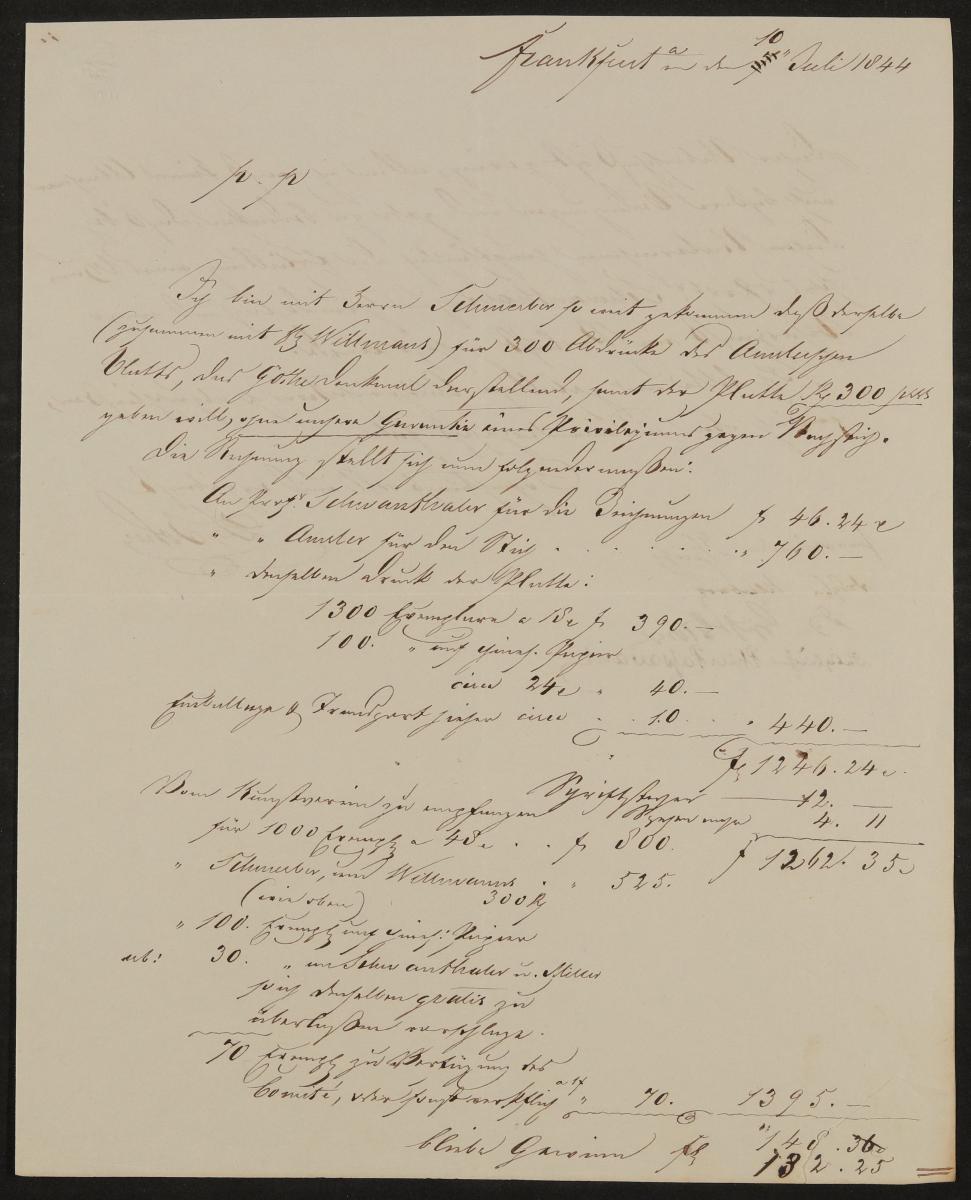 Frankfurt a m den 10 Juli 1844
p. p
Ich bin mit Herrn Schmerber so weit gekommen daß derselbe
(zusammen mit H Willmans) für 300 Abdrücke des Amslerschen
Blatts, das Göthe denkmal darstellend, samt der Platte R 300
geben will, ohne unsere Garantie eines Privilegiums gegen Nachstich.
Die Rechnung stellt sich nun folgendermaßen:
An Profr. Schwanthaler für die Zeichnungen f 46.24 x
" " Amsler für den Stich . . . . . " 760.—
" denselben Druck der Platte:
1300 Exemplare a 18x f 390.—
100. " auf chines. Papier
circa 24x " 40.—
Emballage & Transport hieher circa . . 10. . . " 440.—
f 1246.24x.
Schriftstecher — 12. —
4. 11
Vom Kunstverein zu empfangen
für 1000 Exempl a 48x . . f 800.
f 1262. 35x
" Schmerber, und Willmanns . " 525.
(wie oben) 300 R
" 100. Exempl auf chines: Papier
ab: 30. " an Schwanthaler u.
so ich denselben gratis zu
überlaßen vorschlage.
70 Exempl zu Verfügung des
Comité, oder sonst verkäuflich a 1f " 70. 1395.—
bliebe Gewinn f 148.36
132.25